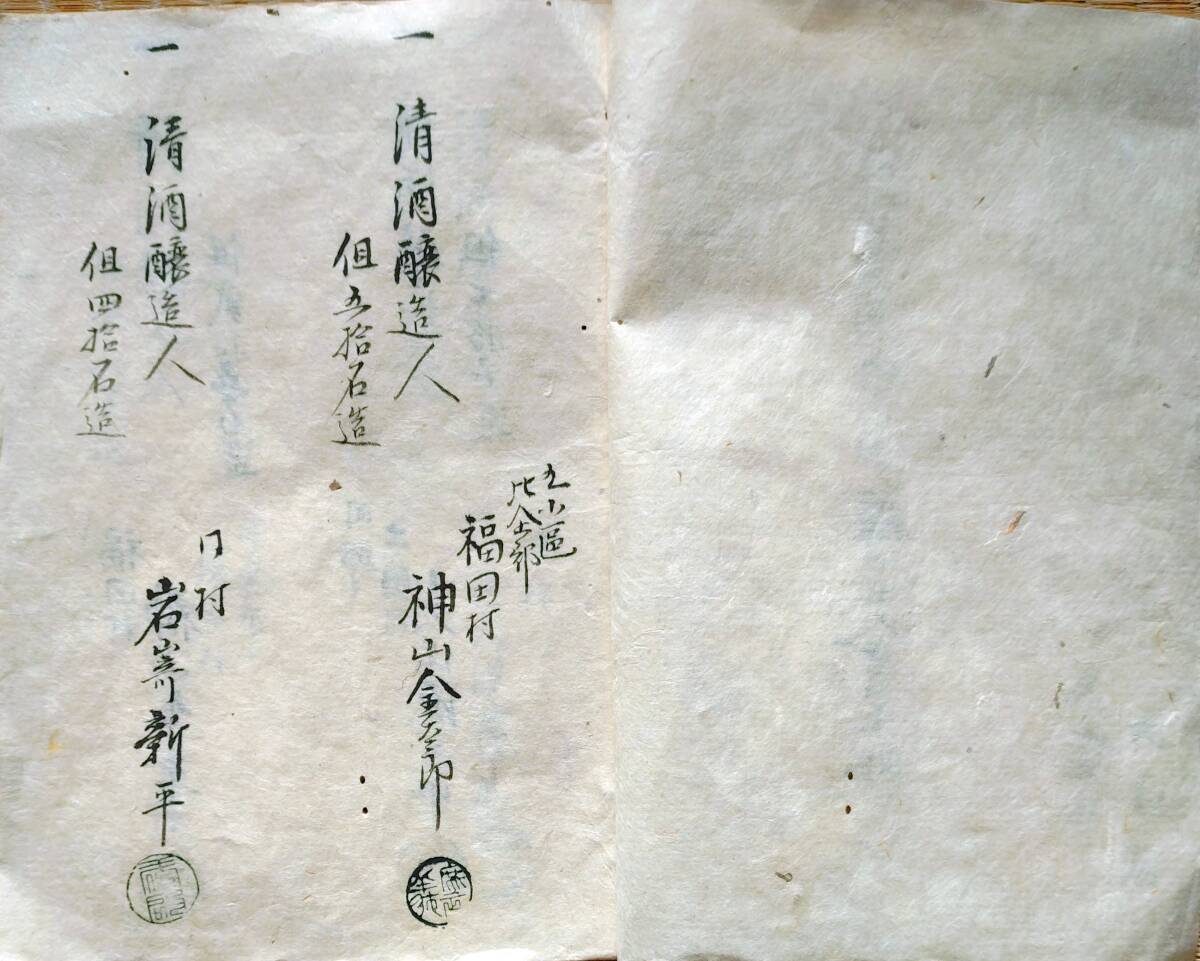 一 清酒醸造人
但五拾石造
五小區
比企郡
福田村
神山金太郎
一 清酒醸造人
但四拾石造
同村
岩嵜新平